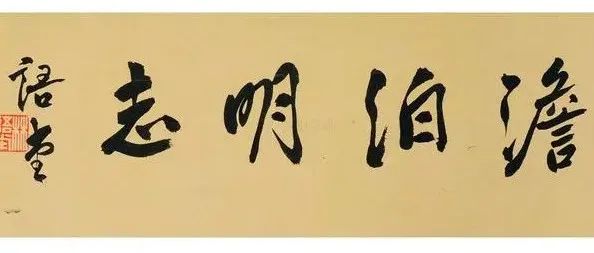 澹泊明志
語堂